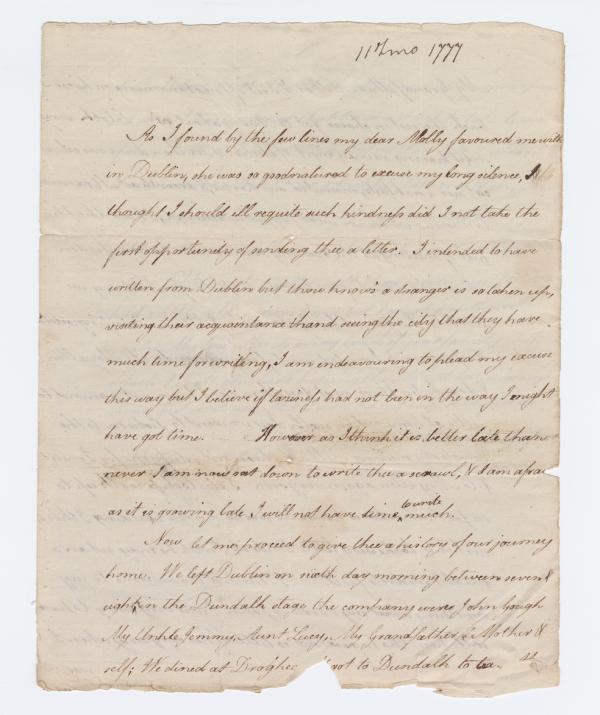 11th mo 1777
As I found by the few lines my dear Molly favoured me with
in Dublin, she was so goodnatured to excuse my long silence, I
thought I should ill requite such kindness did I not take the
first opportunity of sending thee a letter. I intended to have
written from Dublin but thou know's a stranger is so taken up,
visiting their acquaintance thand seeing the city that they have
much time for writing, I am endeavouring to plead my excuse
this way but I believe if laziness had not been in the way I might
have got time. However as I think it is better late than
never I am now sat down to write thee a scrawl, & I am afrai
as it is growing late I will not have time to write much.
Now let me proceed to give thee a history of our journey
home. We left Dublin on sixth day morning between seven &
eight, in the Dundalk stage the company were John Gough
My Unkle Jemmy, Aunt Lucy, My Grandfather, & Mother &
self; We dined at Droghe got to Dundalk to tea.